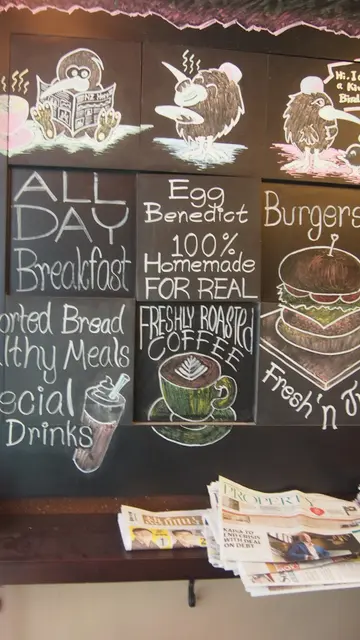 NZ Herald
Hi, I
a Ki
Bir
ALL
DAY
Breakfast
Egg
Benedict
100%
Homemade
FOR REAL
Burgers
orted Bread
lthy Meals
ecial
Drinks
FRESHLY ROASTED
COFFEE
Fresh 'n Ju
PROPERTY